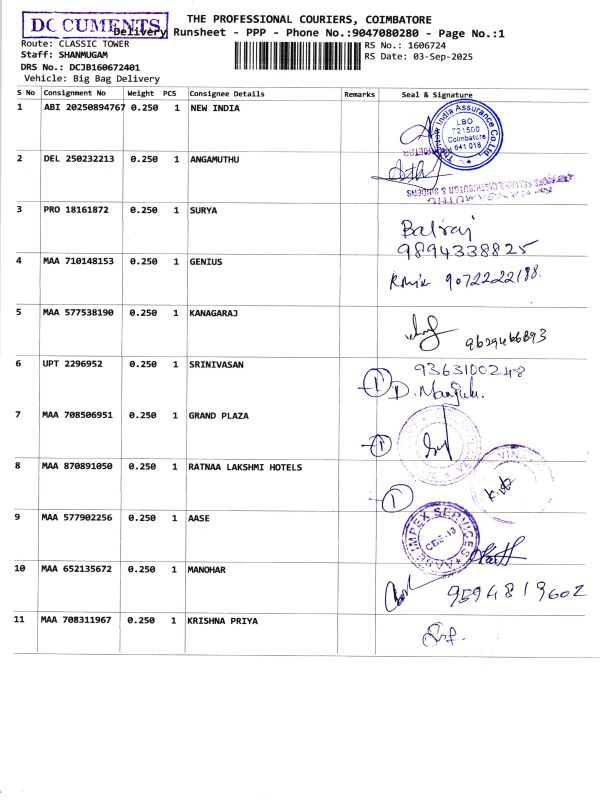 DOCUMENTS
THE PROFESSIONAL COURIERS, COIMBATORE
Delivery Runsheet - PPP - Phone No.:9047080280 - Page No.:1
Route: CLASSIC TOWER
RS No.: 1606724
Staff: SHANMUGAM
RS Date: 03-Sep-2025
DRS No.: DCJB160672401
Vehicle: Big Bag Delivery
S No Consignment No Weight PCS Consignee Details Remarks Seal & Signature
1 ABI 20250894767 0.250 1 NEW INDIA
India Assurance Co. Ltd.
LBO
721500
Coimbatore
641 018
2 DEL 250232213 0.250 1 ANGAMUTHU
3 PRO 18161872 0.250 1 SURYA
Balraj
9894338825
4 MAA 710148153 0.250 1 GENIUS
9072222188
5 MAA 577538190 0.250 1 KANAGARAJ
9629466893
6 UPT 2296952 0.250 1 SRINIVASAN
9363100248
1 D. Manjula.
7 MAA 708506951 0.250 1 GRAND PLAZA
1
8 MAA 870891050 0.250 1 RATNAA LAKSHMI HOTELS
1
9 MAA 577902256 0.250 1 AASE
AASE IMPEX SERVICES
CBE-18
10 MAA 652135672 0.250 1 MANOHAR
9594819602
11 MAA 708311967 0.250 1 KRISHNA PRIYA